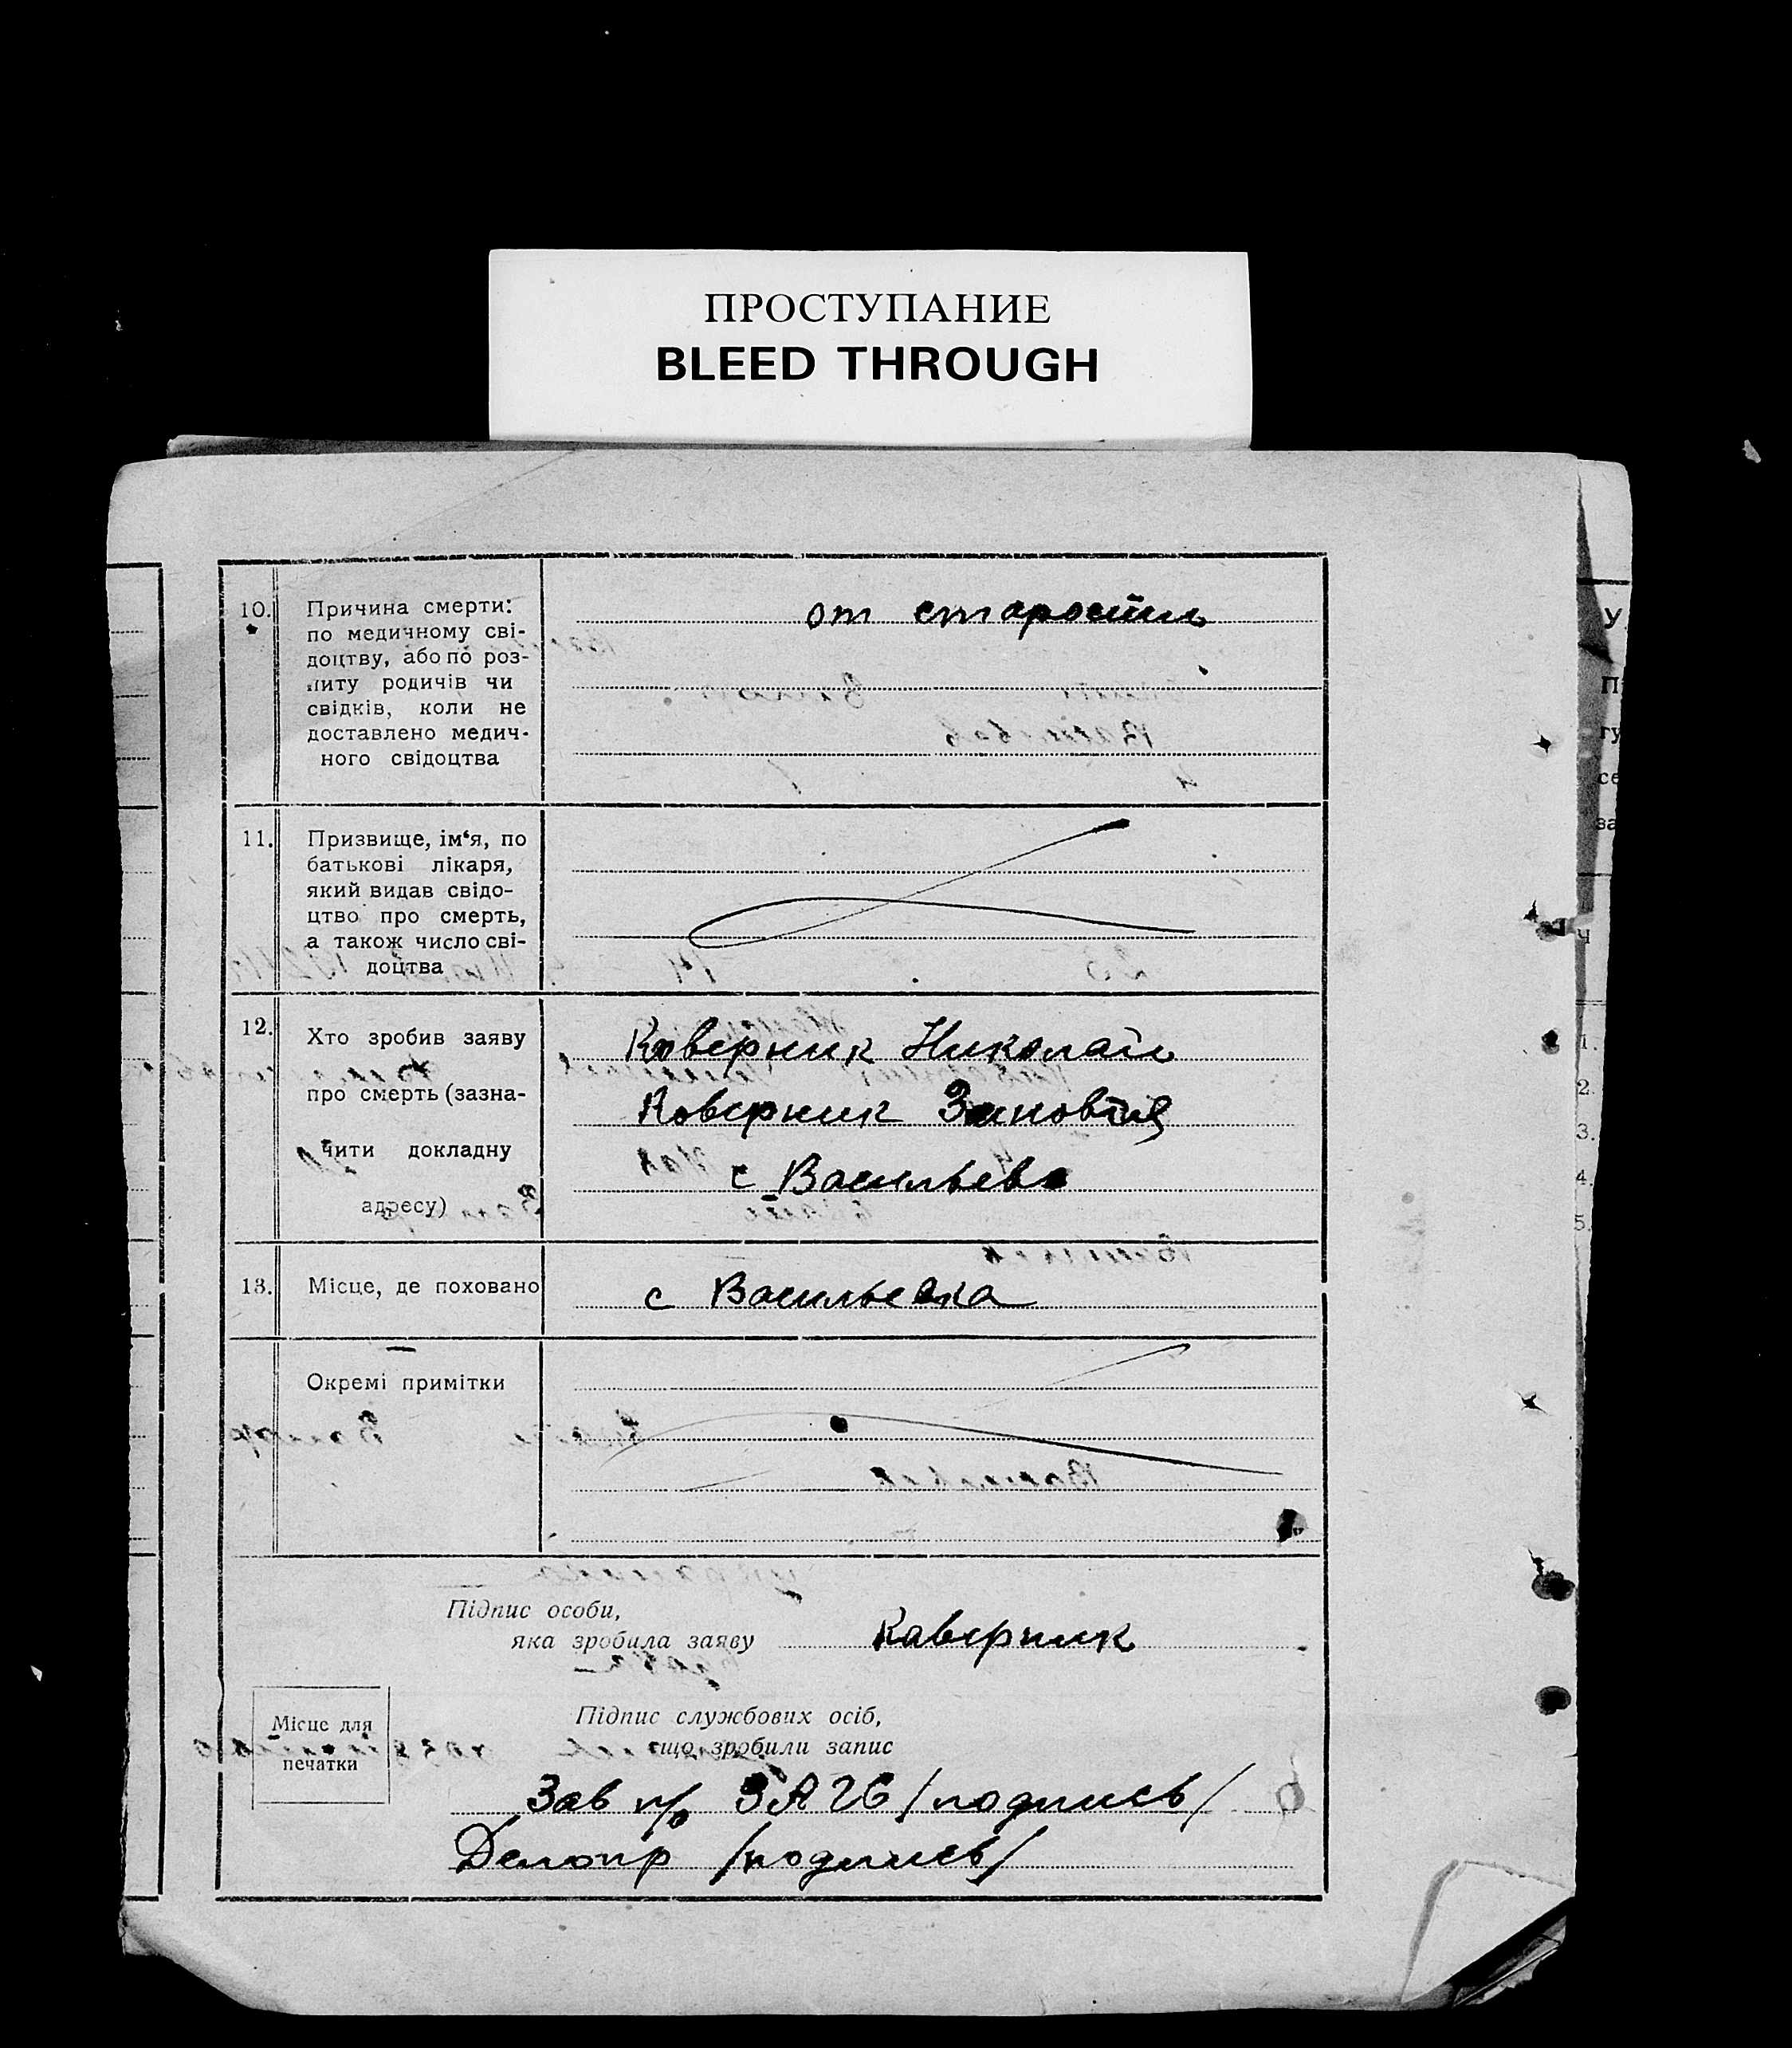 ПРОСТУПАНИЕ
BLEED THROUGH
10. Причина смерти:
по медичному сві-
доцтву, або по роз-
питу родичів чи
свідків, коли не
доставлено медич-
ного свідоцтва
от старости
11. Призвище, ім‘я, по
батькові лікаря,
який видав свідо-
цтво про смерть,
а також число сві-
доцтва
12. Хто зробив заяву
про смерть (зазна-
чити докладну
адресу)
Каверник Николай
Коверник Зиновія
с Васильевк
13. Місце, де поховано
с Васильевка
Окремі примітки
Підпис особи,
яка зробила заяву Каверник
Місце для
печатки
Підпис службових осіб,
що зробили запис
Зав п/о ЗАГС /подпись/
Делопр /подпись/
У
П
гу
се
за
Ч
1.
2.
3.
4.
5.